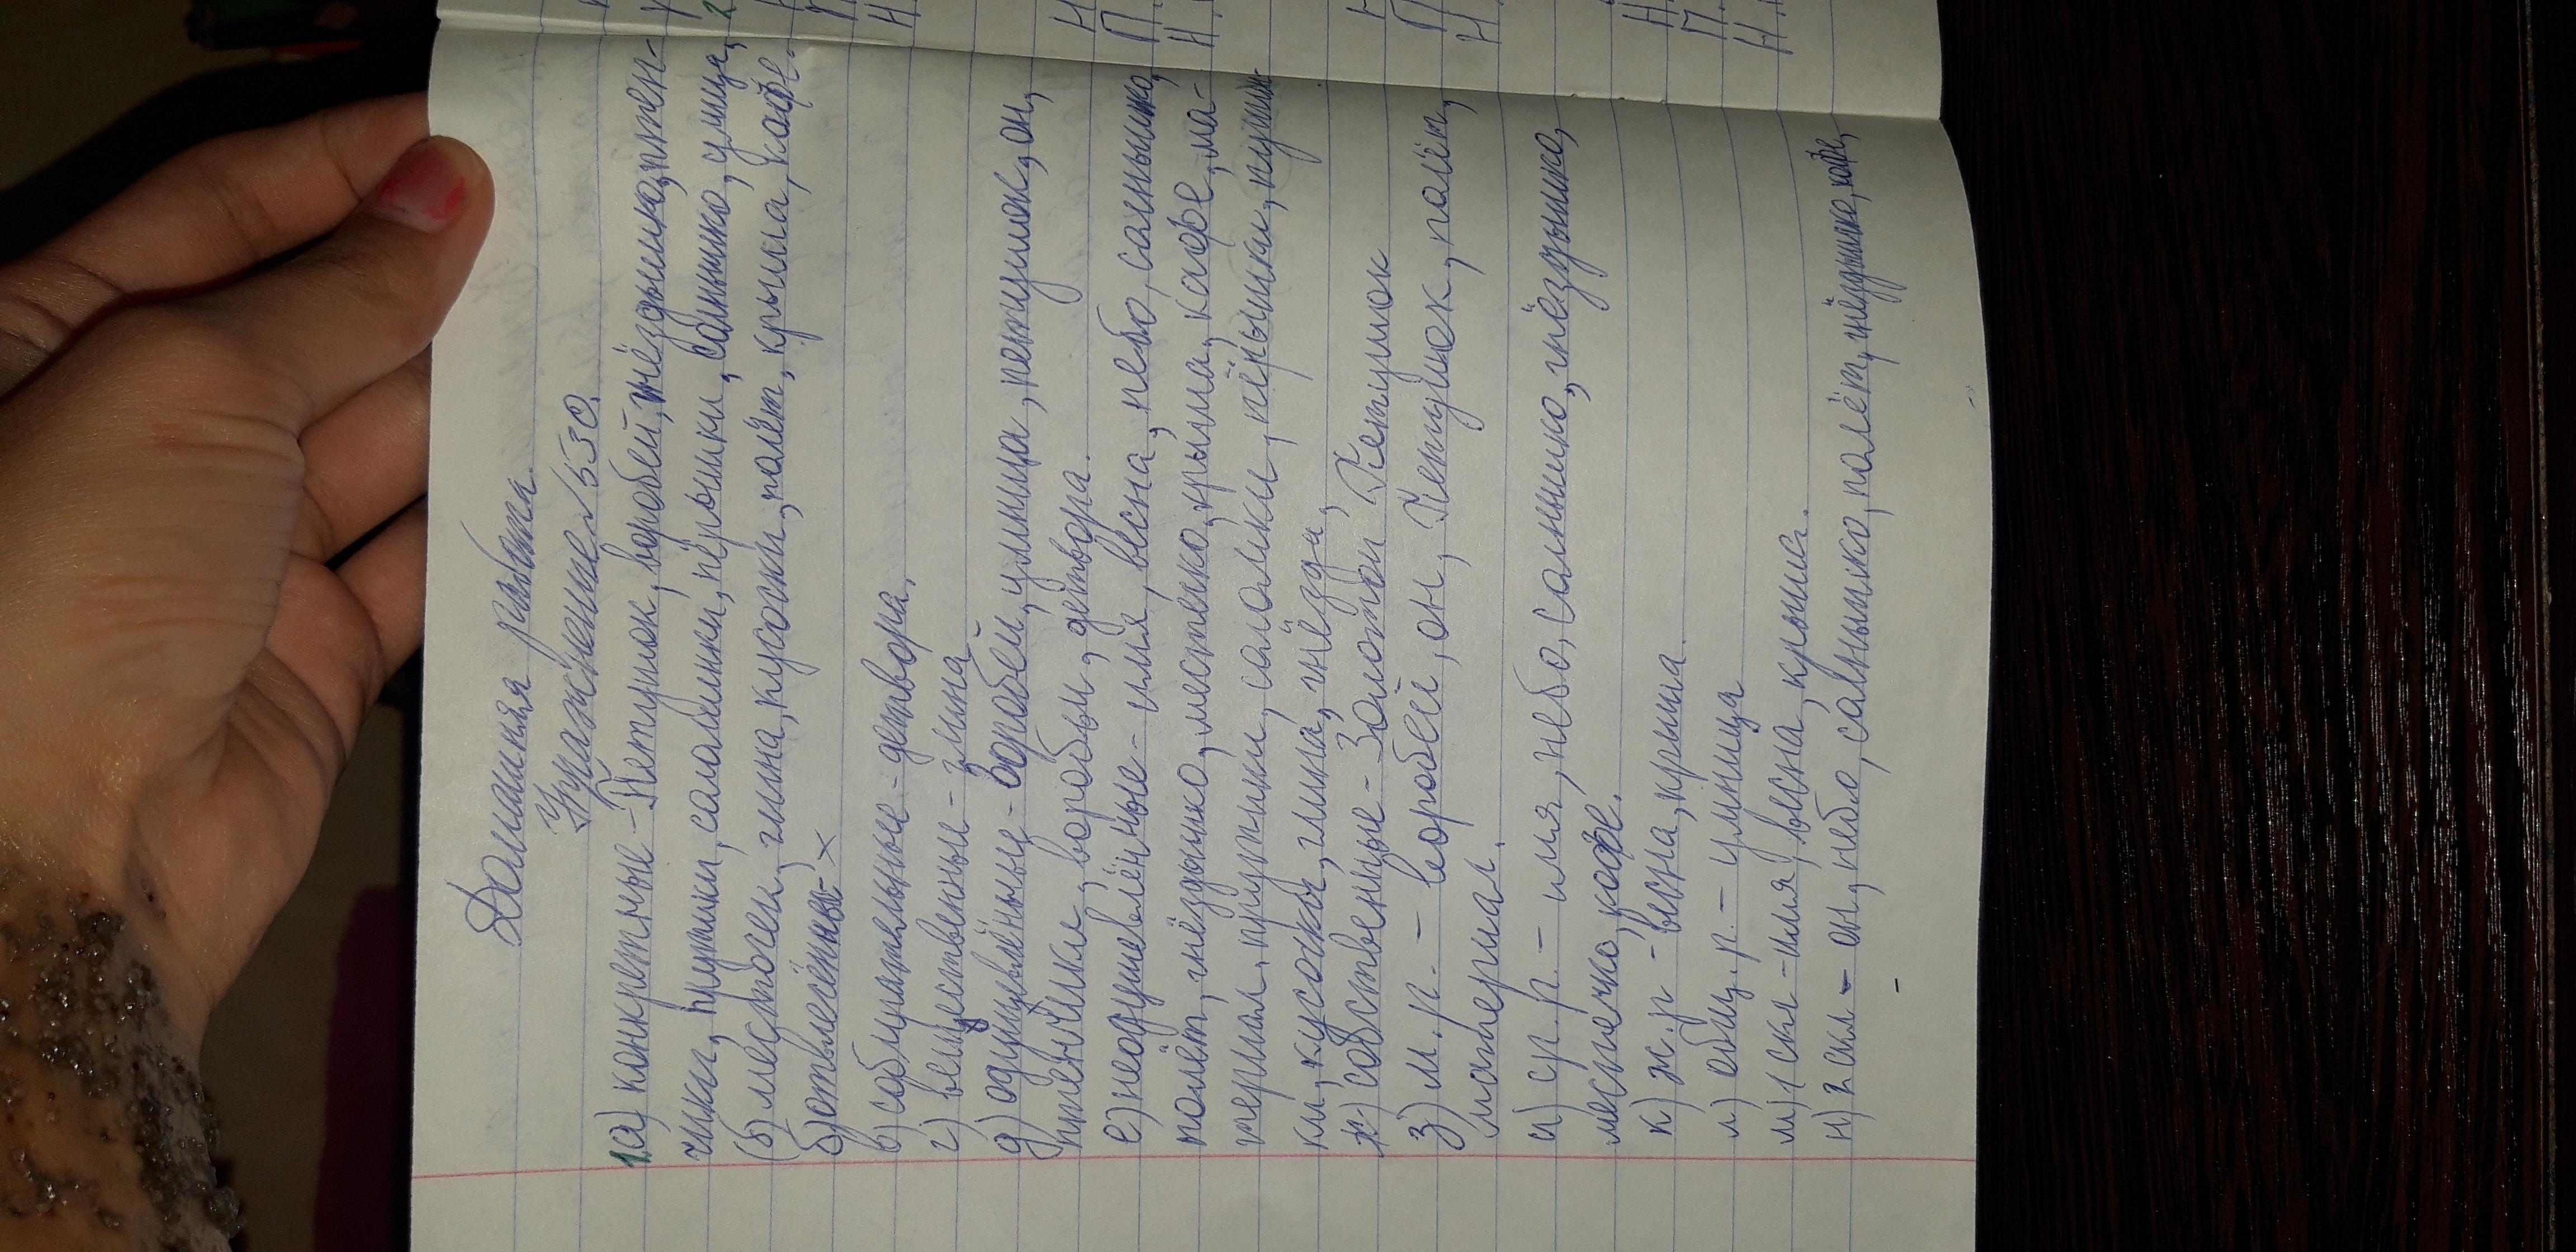 Домашняя работа.
Упражнение 530.
1.а) конкретные - Петушок, воробей, гнёздышко, птен-
чики, прутики, соломинки, пёрышки, солнышко, улица,
(б) месяц, глина, кусочки, полёт, крыша, кафе.
б) отвлечённые - ×
в) собирательные - детвора.
г) вещественные - глина
д) одушевлённые - воробей, умница, петушок, он,
птенчики, воробьи, детвора.
е) неодушевлённые - имя, весна, небо, солнышко,
полёт, гнёздышко, местечко, крыша, кафе, ма-
териал, прутики, соломки, пёрышки,
ки, кусочки, глина, гнёзда,
ж) собственные - Золотой Петушок
з) м.р. - воробей, он, Петушок, полёт,
материал.
и) ср.р. - имя, небо, солнышко, гнёздышко,
местечко, кафе.
к) ж.р - весна, крыша.
л) общ.р. - умница
м) 1 скл - имя, весна, крыша.
н) 2 скл - он, небо, солнышко, полёт, гнёздышко, кафе,